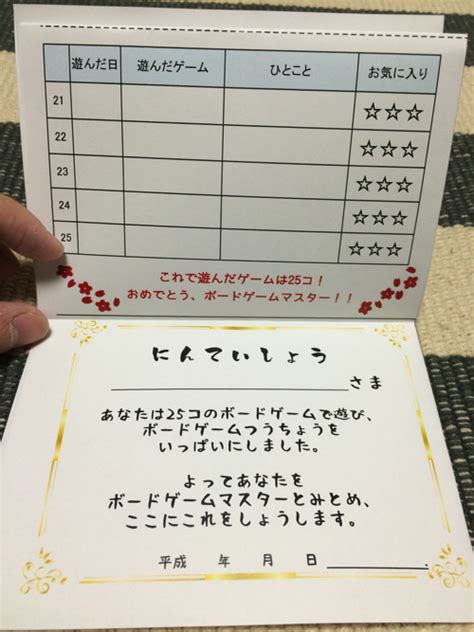 遊んだ日 遊んだゲーム ひとこと お気に入り
21 ☆☆☆
22 ☆☆☆
23 ☆☆☆
24 ☆☆☆
25 ☆☆☆
これで遊んだゲームは25コ!
おめでとう、ボードゲームマスター!!
にんていしょう
さま
あなたは25コのボードゲームで遊び、
ボードゲームつうちょうを
いっぱいにしました。
よってあなたを
ボードゲームマスターとみとめ、
ここにこれをしょうします。
平成 年 月 日